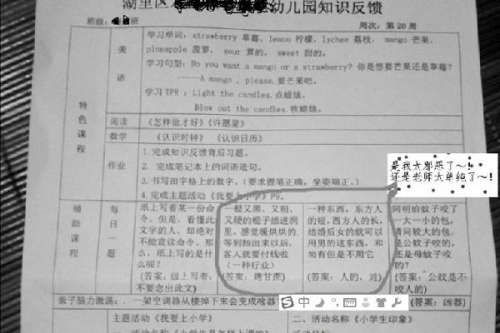 湖里区 幼儿园知识反馈
班
周次：第 20 周
特色课程
美语
学习单词：strawberry 草莓，lemon 柠檬，lychee 荔枝， mango 芒果，
pineapple 菠萝， sour 酸的， sweet 甜的。
学习句型：Do you want a mango or a strawberry? 你是想要芒果还是草莓?
——A mango , please.要芒果吧。
学习 TPR：Light the candles.点蜡烛。
Blow out the candles.吹蜡烛。
阅读
《怎样做才好》《许愿星》
数学
《认识时钟》 《认识日历》
作业
1.完成知识反馈背后习题。
2.完成笔记本上的词语造句。
3.书写田字格上的数字。（要求握笔正确，坐姿端正。）
4.完成主题活动《我要上小学》P6.
是我太邪恶了～!
还是老师太单纯了～!
辅助课程
每日一题
纸上写着某一份命
令。但是，看懂此
文字的人，却绝对
不能宣读命令。那
么，纸上写的是什
么呢?
(答案：纸上写着，
不要念出此文)
一根又黑、又粗、
又硬的棍子插进洞
里，感觉暖烘烘的。
等到抽出来以后，
客人就要付钱啦
(一种行业)
(答案：烤甘蔗)
一种东西，东方人
的短，西方人的长，
结婚后女的就可以
用男的这东西，和
尚有但是不用它
(答案：人的，姓)
阿明给蚊子咬了
一大一小的包，
请问较大的包，
是公蚊子咬的，
还是母蚊子咬
的?
(答案：公蚊是不
咬人的)
中
一架空调器从楼掉下来会变成啥器
(答案：凶器)
主题活动《我要上小学》
二、活动名称《小学生印象》